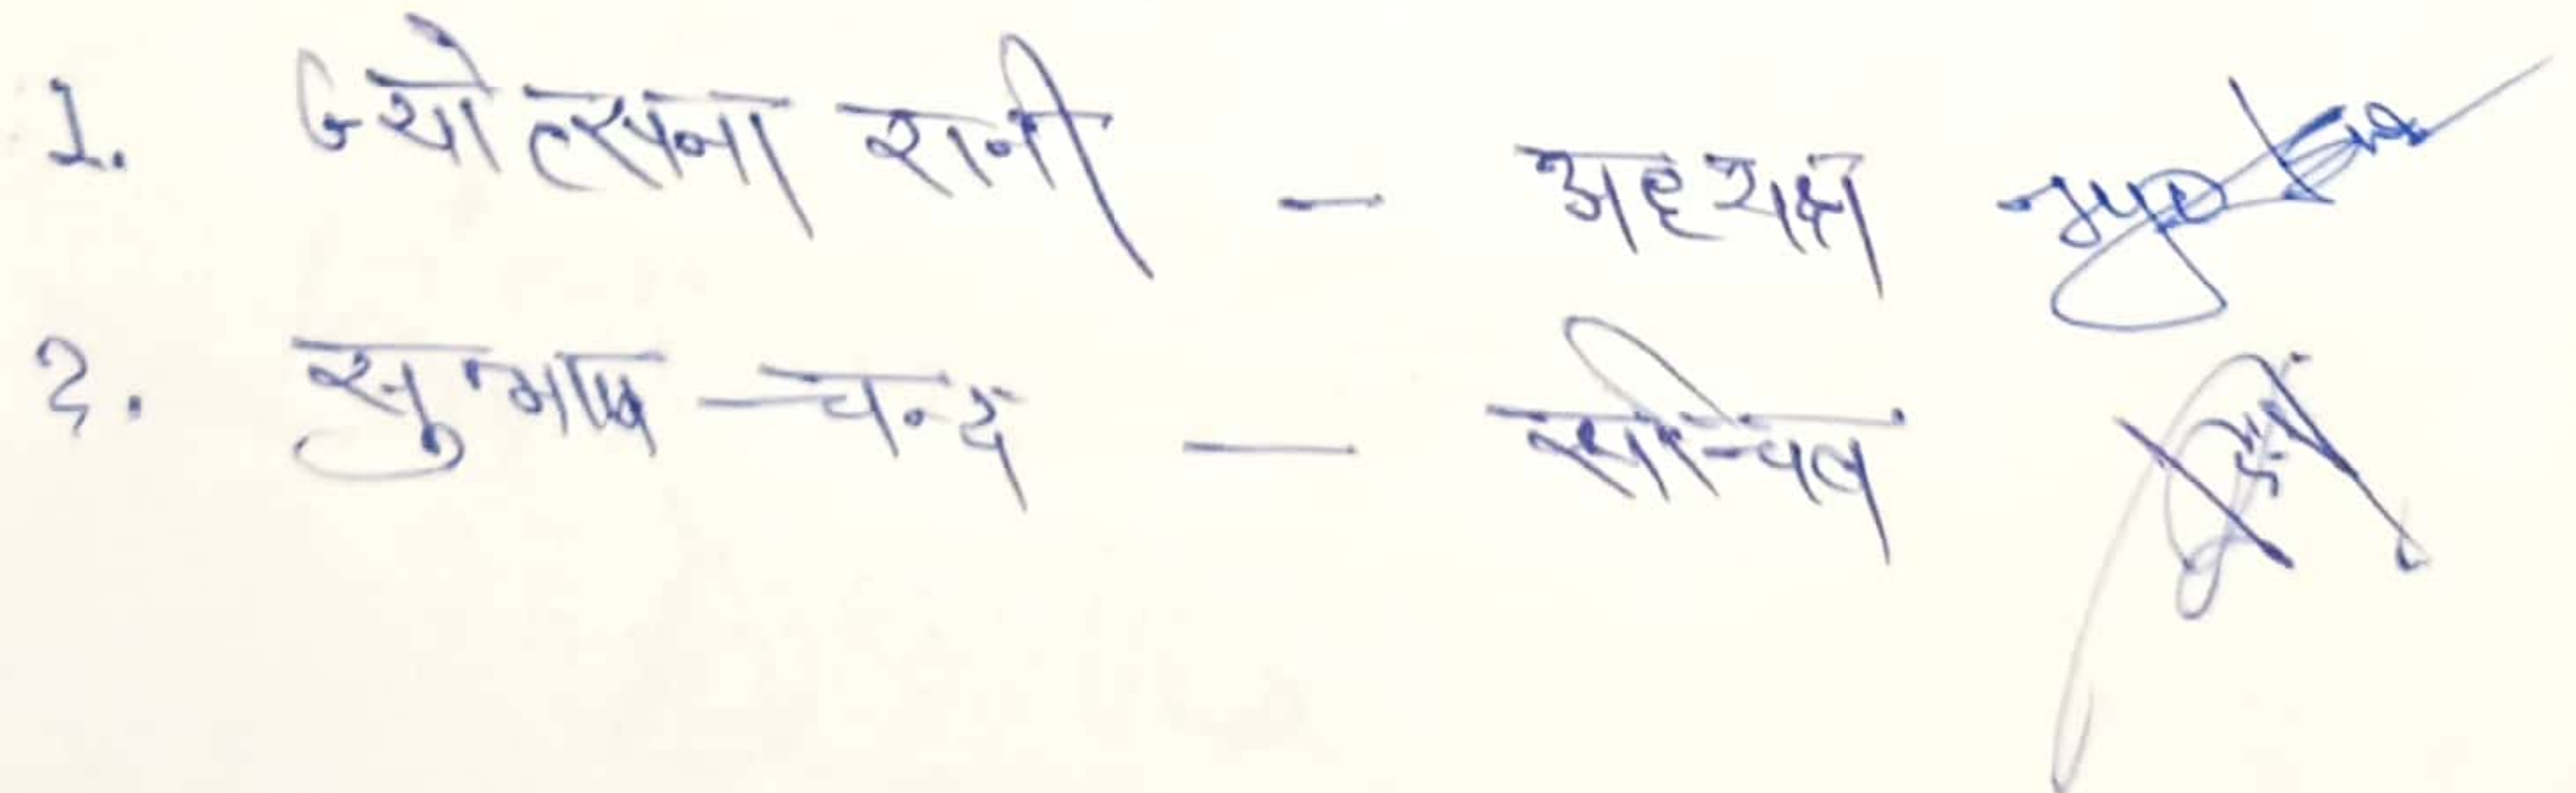 1. ज्योत्सना रानी - अध्यक्ष
2. सुभाष चन्द - सचिव